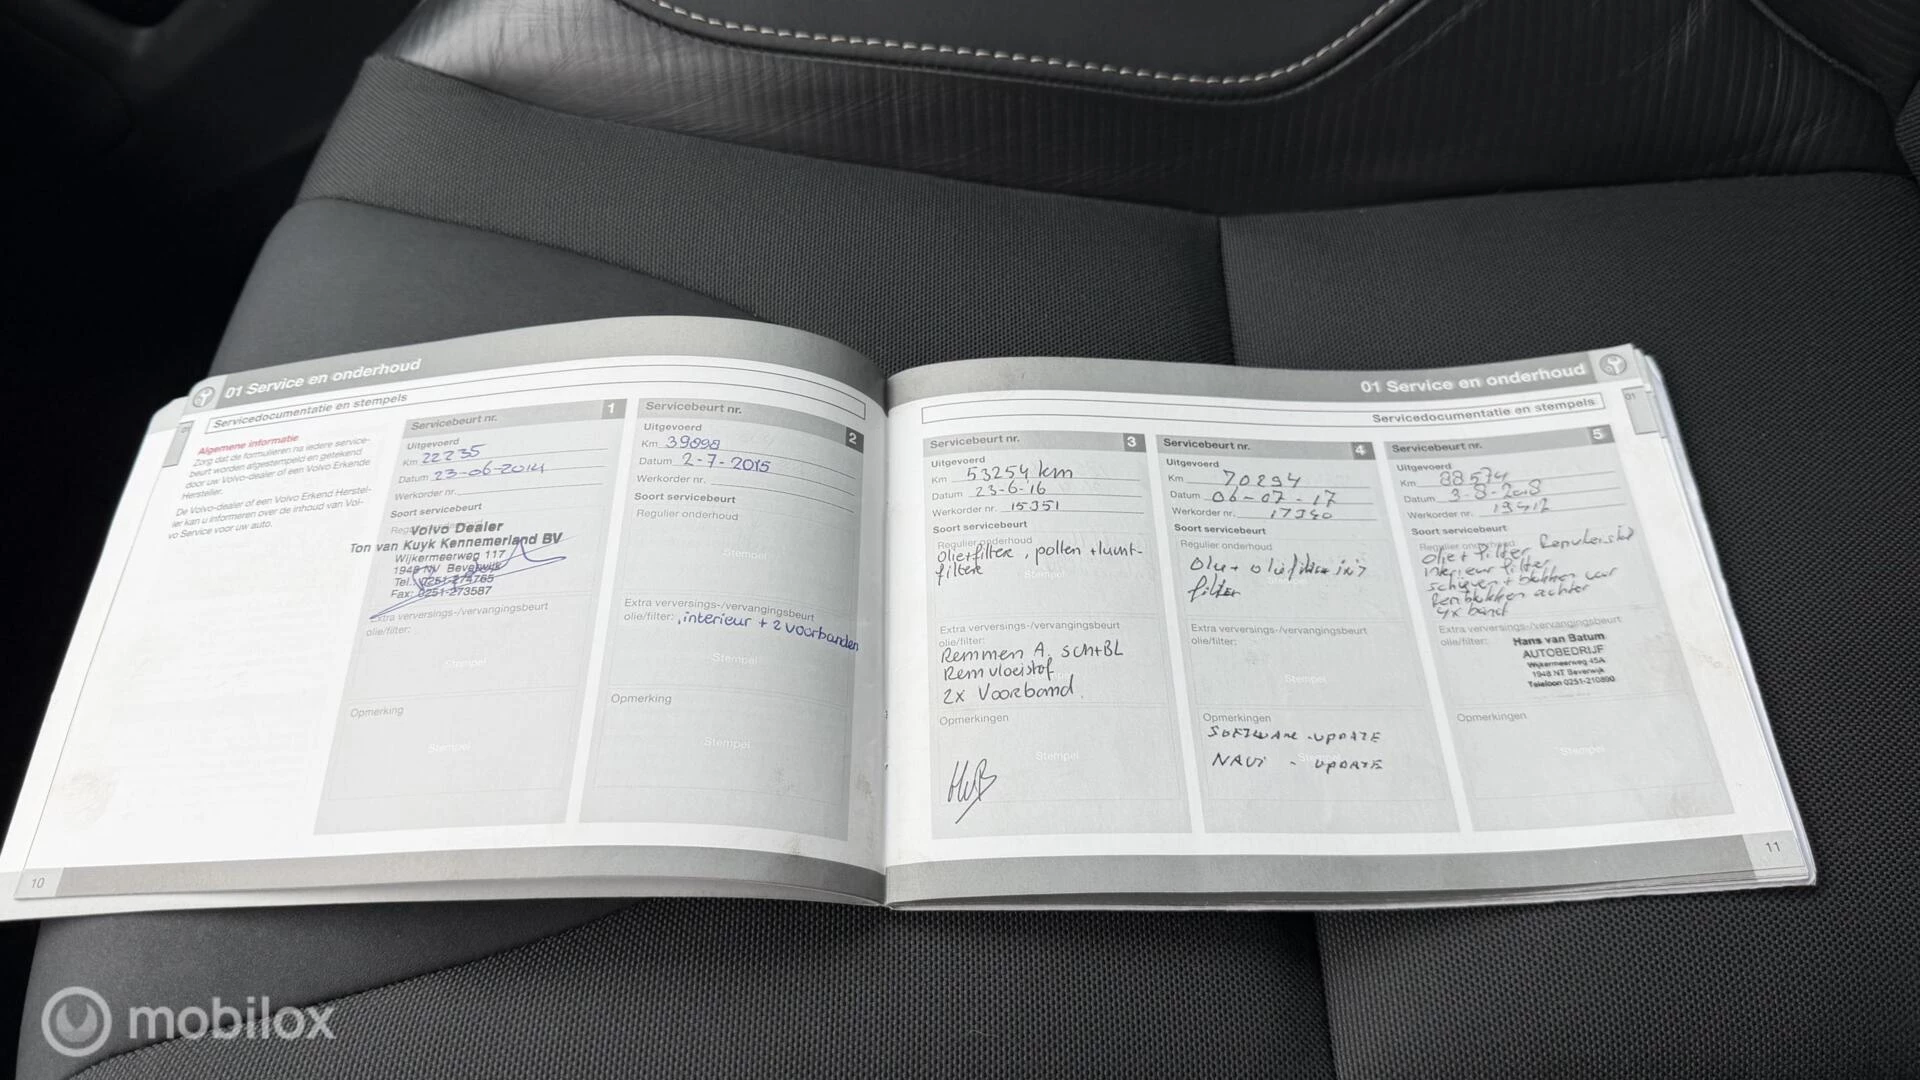 01 Service en onderhoud
Servicedocumentatie en stempels
Algemene informatie
Zorg dat de formulieren na iedere service-
beurt worden afgestempeld en getekend
door uw Volvo-dealer of een Volvo Erkende
Hersteller.
De Volvo-dealer of een Volvo Erkend Herstel-
ler kan u informeren over de inhoud van Vol-
vo Service voor uw auto.
Servicebeurt nr. 1
Uitgevoerd
Km 22235
Datum 23-06-2014
Werkorder nr.
Soort servicebeurt
Volvo Dealer
Ton van Kuyk Kennemerland BV
Wijkermeerweg 117
1948 NV Beverwijk
Tel.: 0251-274765
Fax: 0251-273587
Extra verversings-/vervangingsbeurt
olie/filter:
Stempel
Opmerking
Stempel
Servicebeurt nr. 2
Uitgevoerd
Km 39898
Datum 2-7-2015
Werkorder nr.
Soort servicebeurt
Regulier onderhoud
Stempel
Extra verversings-/vervangingsbeurt
olie/filter: interieur + 2 voorbanden
Stempel
Opmerking
Stempel
10
01 Service en onderhoud
01
Servicedocumentatie en stempels
Servicebeurt nr. 3
Uitgevoerd
Km 53254 km
Datum 23-6-16
Werkorder nr. 15351
Soort servicebeurt
Regulier onderhoud
olie+filter, pollen + lucht-
filter
Stempel
Extra verversings-/vervangingsbeurt
olie/filter:
Remmen A. sch+BL
Remvloeistof
2x Voorband.
Opmerkingen
Stempel
HvB
Servicebeurt nr. 4
Uitgevoerd
Km 70294
Datum 06-07-17
Werkorder nr. 17340
Soort servicebeurt
Regulier onderhoud
filter
Extra verversings-/vervangingsbeurt
olie/filter:
Stempel
Opmerkingen
SOFTWARE-UPDATE
NAVI - UPDATE
Servicebeurt nr. 5
Uitgevoerd
Km 88574
Datum 3-8-2018
Werkorder nr. 19412
Soort servicebeurt
Regulier onderhoud
olie + filter Remvloeistof
interieur filter
schijven + blokken voor
Remblokken achter
4x band
Extra verversings-/vervangingsbeurt
olie/filter:
Hans van Batum
AUTOBEDRIJF
Wijkermeerweg 45A
1948 NT Beverwijk
Telefoon 0251-210890
Opmerkingen
Stempel
11
mobilox